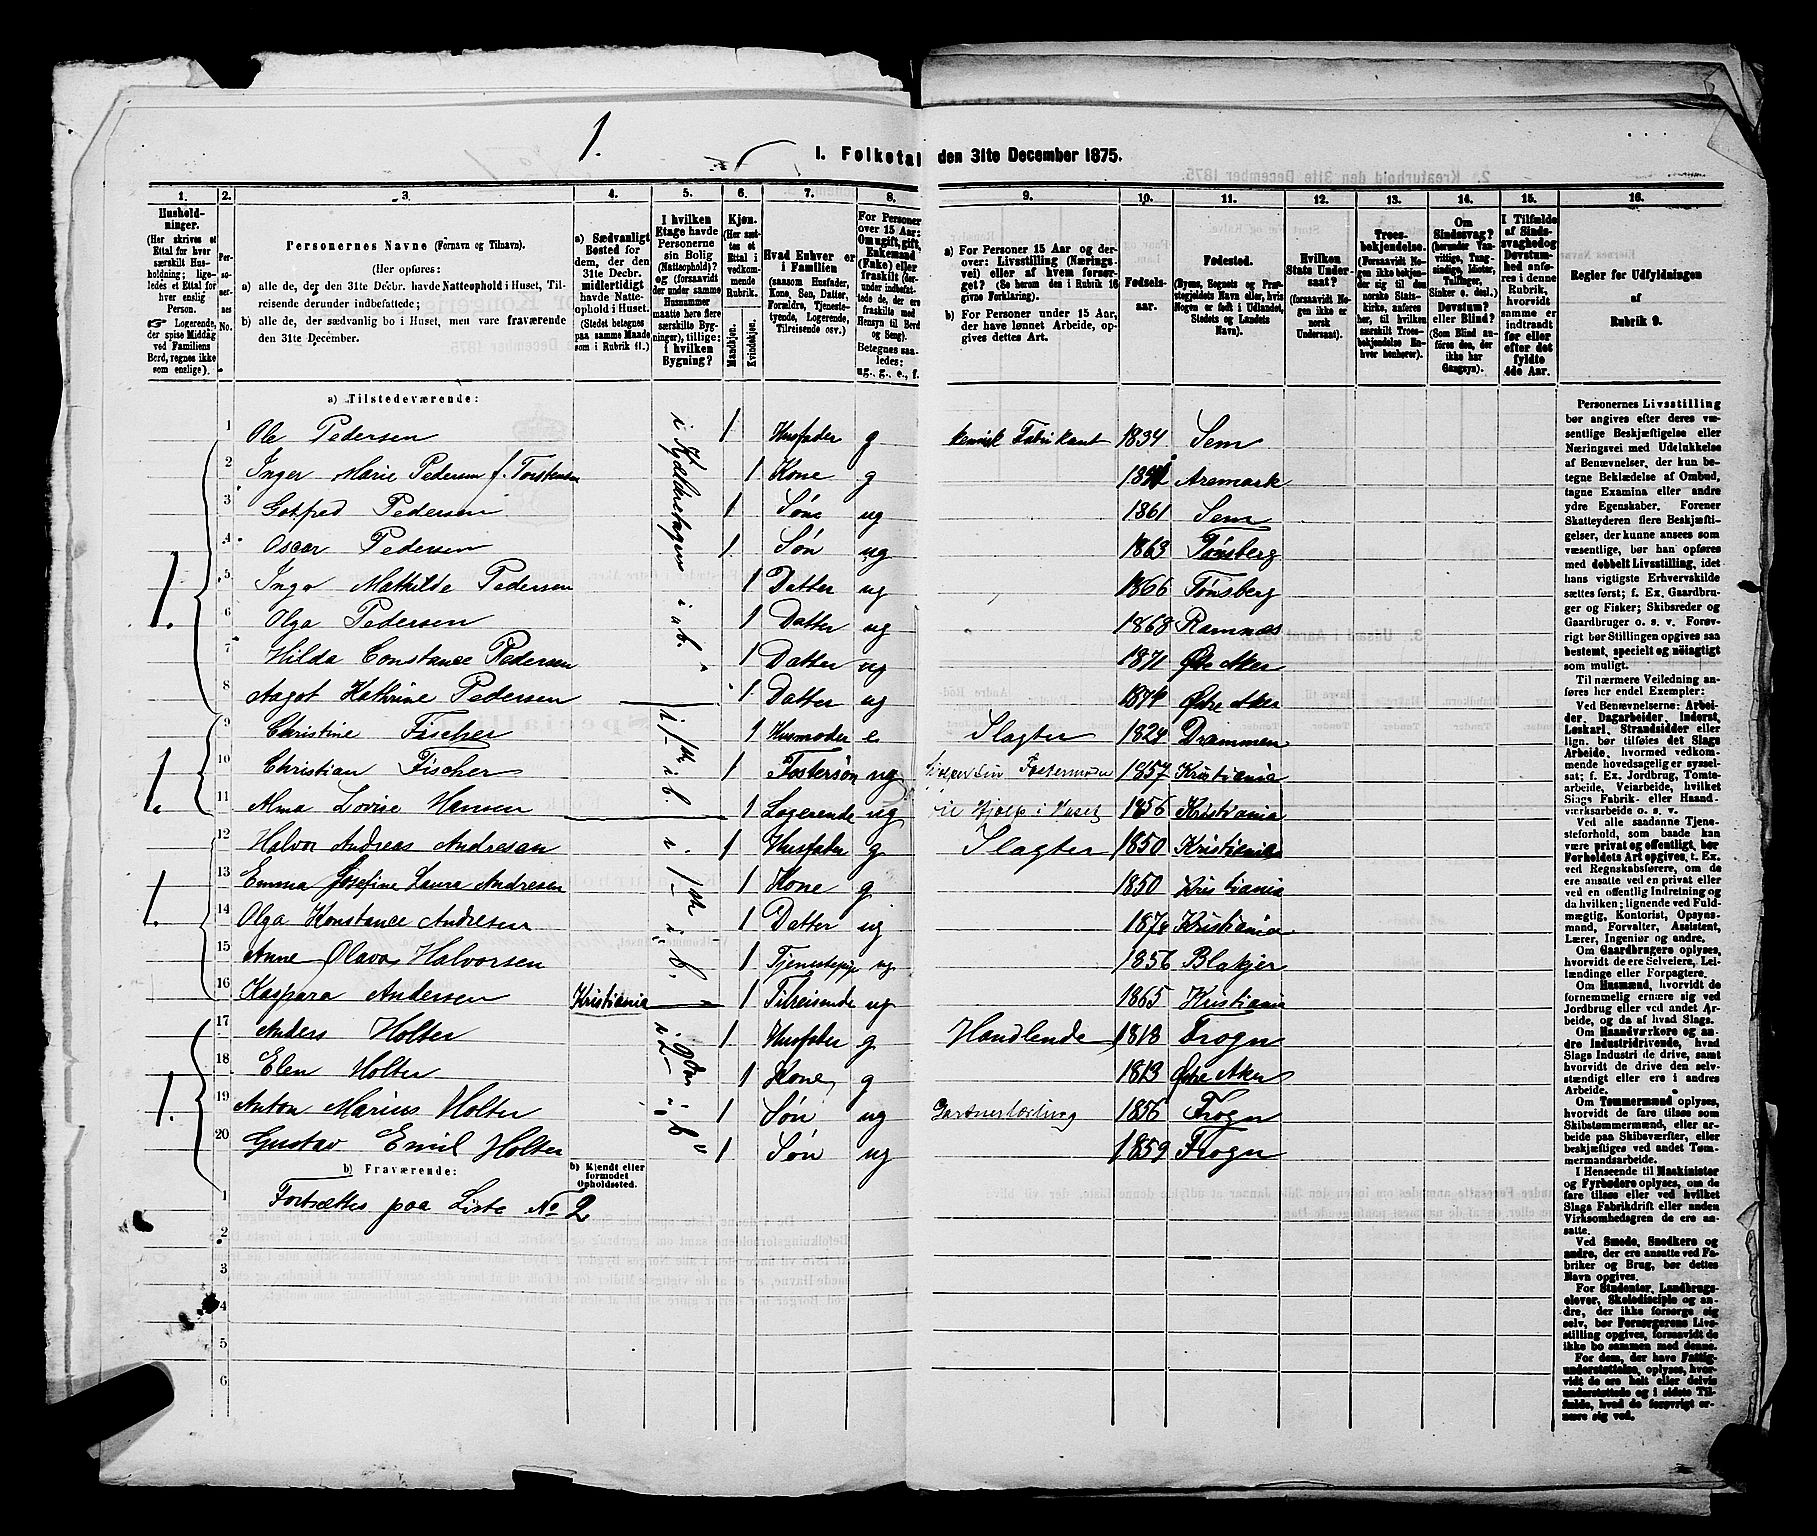 1.
I. Folketal den 31te December 1875.
1. 2. 3. 4. 5. 6. 7. 8. 9. 10. 11. 12. 13. 14. 15. 16.
Husholdninger. (Her skrives et Ettal for hver særskilt Husholdning; ligeledes et Ettal for hver enslig Person. ☞ Logerende, der spise Middag ved Familiens Bord, regnes ikke som enslige).
Personernes No.
Personernes Navne (Fornavn og Tilnavn).
(Her opføres:
a) alle de, der den 31te Decbr. havde Natteophold i Huset, Tilreisende derunder indbefattede;
b) alle de, der sædvanlig bo i Huset, men vare fraværende den 31te December.
a) Sædvanligt Bosted for dem, der den 31te Decbr. midlertidigt havde Natteophold i Huset. (Stedet betegnes paa samme Maade som i Rubrik 11.)
I hvilken Etage havde Personerne sin Bolig (Natteophold)? (forsaavidt der under samme Husnummer maatte høre flere særskilte Bygninger), tillige: i hvilken Bygning?
Kjøn. (Her sættes et Ettal i vedkommende Rubrik.
Mandkjøn.
Kvindekjøn.
Hvad Enhver er i Familien (saasom Husfader, Kone, Søn, Datter, Forældre, Tjenestetyende, Logerende, Tilreisende osv.)
For Personer over 15 Aar: Om ugift, gift, Enkemand (Enke) eller fraskilt (derunder indbefattede de, der ere fraskilte med Hensyn til Bord og Seng). Betegnes saaledes: ug., g., e., f.
a) For Personer 15 Aar og derover: Livsstilling (Næringsvei) eller af hvem forsørget? (Se herom den i Rubrik 16 givne Forklaring).
b) For Personer under 15 Aar, der have lønnet Arbeide, opgives dettes Art.
Fødselsaar.
Fødested. (Byens, Sognets og Præstegjeldets Navn eller, hvis Nogen er født i Udlandet, Stedets og Landets Navn).
Hvilken Stats Undersaat? (forsaavidt Nogen ikke er norsk Undersaat).
Troesbekjendelse. (Forsaavidt Nogen ikke bekjender sig til den norske Statskirke, anføres her, til hvilken særskilt Troesbekjendelse Enhver henhører).
Om Sindssvag? (herunder Vanvittige, Tungsindige, Idioter, Tullinger, Sinker o. desl.) Døvstum? eller Blind? (Som Blind anføres den, der ikke har Gangsyn).
I Tilfælde af Sindssvaghed og Døvstumhed anføres i denne Rubrik, hvorvidt samme er indtraadt før eller efter det fyldte 4de Aar.
Regler for Udfyldningen af Rubrik 9.
a) Tilstedeværende:
1. 1 Ole Pedersen i Kjelderetagen i a b. 1 Husfader g kemisk Fabrikant 1834 Sem
2 Inger Marie Pedersen f. Torstensen 1 Kone g Aremark
3 Gotfred Pedersen 1 Søn ug 1861 Sem
4 Oscar Pedersen 1 Søn ug 1863 Tønsberg
5 Inga Mathilde Pedersen 1 Datter ug 1866 Tønsberg
6 Olga Pedersen 1 Datter ug 1868 Ramnæs
7 Hilda Constance Pedersen 1 Datter ug 1871 Østre Aker
8 Aagot Kathrine Pedersen 1 Datter ug 1874 Østre Aker
1. 9 Christine Fischer i 1ste i b. 1 Husmoder e Slagter 1824 Drammen
10 Christian Fischer 1 Fostersøn ug hjelper sin Fostermoder 1857 Kristiania
11 Alma Lovise Hansen 1 Logerende ug til Hjælp i Huset 1856 Kristiania
1. 12 Halvor Andreas Andresen i 1ste i b. 1 Husfader g Slagter 1850 Kristiania
13 Emma Josefine Laura Andresen 1 Kone g 1850 Kristiania
14 Olga Konstance Andresen 1 Datter ug Kristiania
15 Anne Olava Halvorsen 1 Tjenestepige ug 1856 Blakjer
16 Kaspara Andersen Kristiania 1 Tilreisende ug 1865 Kristiania
1. 17 Anders Holter i 2den i b 1 Husfader g Handlende 1813 Frogn
18 Elen Holter 1 Kone g 1813 Østre Aker
19 Anton Marius Holter 1 Søn ug Gartnerlærling 1856 Frogn
20 Gustav Emil Holter 1 Søn ug 1859 Frogn
b) Fraværende:
b) Kjendt eller formodet Opholdssted.
1 Fortsættes paa Liste No 2
2
3
4
5
6
Personernes Livsstilling bør angives efter deres væsentlige Beskjæftigelse eller Næringsvei med Udelukkelse af Benævnelser, der kun betegne Beklædelse af Ombud, tagne Examina eller andre ydre Egenskaber. Forener Skatteyderen flere Beskjæftigelser, der kunne ansees som væsentlige, bør han opføres med dobbelt Livsstilling, idet hans vigtigste Erhvervskilde sættes først; f. Ex. Gaardbruger og Fisker; Skibsreder og Gaardbruger o. s. v. Forøvrigt bør Stillingen opgives saa bestemt, specielt og nøiagtigt som muligt.
Til nærmere Veiledning anføres her endel Exempler:
Ved Benævnelserne: Arbeider, Dagarbeider, Inderst, Løskarl, Strandsidder eller lign. bør tilføies det Slags Arbeide, hvormed vedkommende hovedsagelig er sysselsat; f. Ex. Jordbrug, Tomtearbeide, Veiarbeide, hvilket Slags Fabrik- eller Haandværksarbeide o. s. v.
Ved alle saadanne Tjenesteforhold, som baade kan være privat og offentligt, bør Forholdets Art opgives, t. Ex. ved Regnskabsførere, om de ere ansatte ved en privat eller ved en offentlig Indretning og da hvilken; lignende ved Fuldmægtig, Kontorist, Opsynsmand, Forvalter, Assistent, Lærer, Ingeniør og andre.
Om Gaardbrugere oplyses, hvorvidt de ere Selveiere, Leilændinge eller Forpagtere.
Om Husmænd, hvorvidt de fornemmelig ernære sig ved Jordbrug eller ved andet Arbeide, og da af hvad Slags.
Om Haandværkere og andre Industridrivende, hvad Slags Industri de drive, samt hvorvidt de drive den selvstændigt eller ere i andres Arbeide.
Om Tømmermænd oplyses, hvorvidt de fare tilsøs som Skibstømmermænd, eller arbeide paa Skibsværfter, eller beskjæftiges ved andet Tømmermandsarbeide.
I Henseende til Maskinister og Fyrbødere oplyses, om de fare tilsøs eller ved hvilket Slags Fabrikdrift eller anden Virksomhedsgren de ere ansatte.
Ved Smede, Snedkere og andre, der ere ansatte ved Fabriker og Brug, bør dettes Navn opgives.
For Studenter, Landbrugselever, Skoledisciple og andre, der ikke forsørge sig selv, bør Forsørgerens Livsstilling opgives, forsaavidt de ikke bo sammen med denne.
For dem, der have Fattigunderstøttelse, oplyses, hvorvidt de ere helt eller delvis understøttede og i sidste Tilfælde, hvad de forøvrigt ernære sig ved.